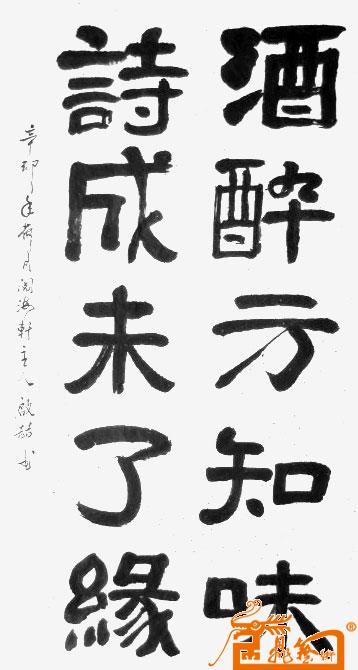 酒醉方知味
詩成未了緣
辛卯年荷月閱海軒主人啟喆书